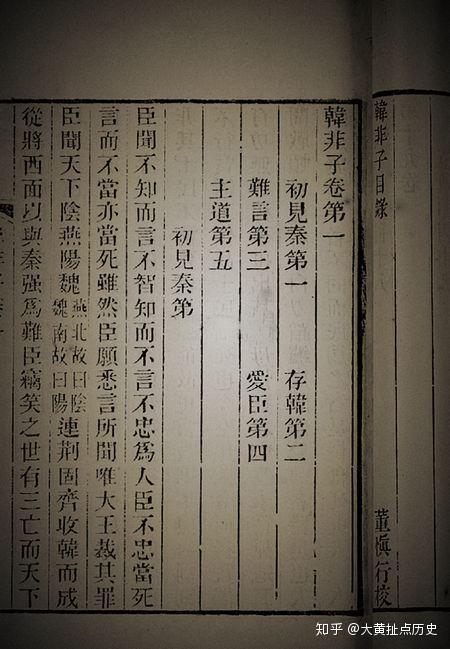 韓非子目錄 董慎行校
韓非子卷第一
初見秦第一 存韓第二
難言第三 愛臣第四
主道第五
初見秦第
臣聞不知而言不智知而不言不忠爲人臣不忠當死
言而不當亦當死雖然臣願悉言所聞唯大王裁其罪
臣聞天下陰燕陽魏燕北故曰陰魏南故曰陽連荆固齊收韓而成
從將西面以與秦强爲難臣竊笑之世有三亡而天下
知乎 @大黄扯点历史